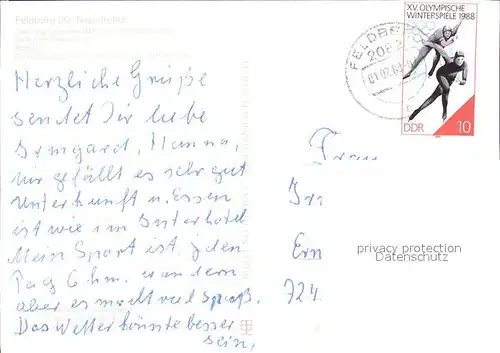 Feldberg (Kr. Neustrelitz)
XV. OLYMPISCHE
WINTERSPIELE 1988
FELDBE
208
01.02.
DDR 10
Herzliche Grüße
sendet Dir liebe
Irmgard, Hanna,
mir gefällt es sehr gut
Unterkunft u. Essen
ist wie im Interhotel
Mein Sport ist jeden
Tag 6 km. wandern
aber es macht viel Spaß.
Das Wetter könnte besser
sein,
Frau
Irm
Ern
724
privacy protection
Datenschutz